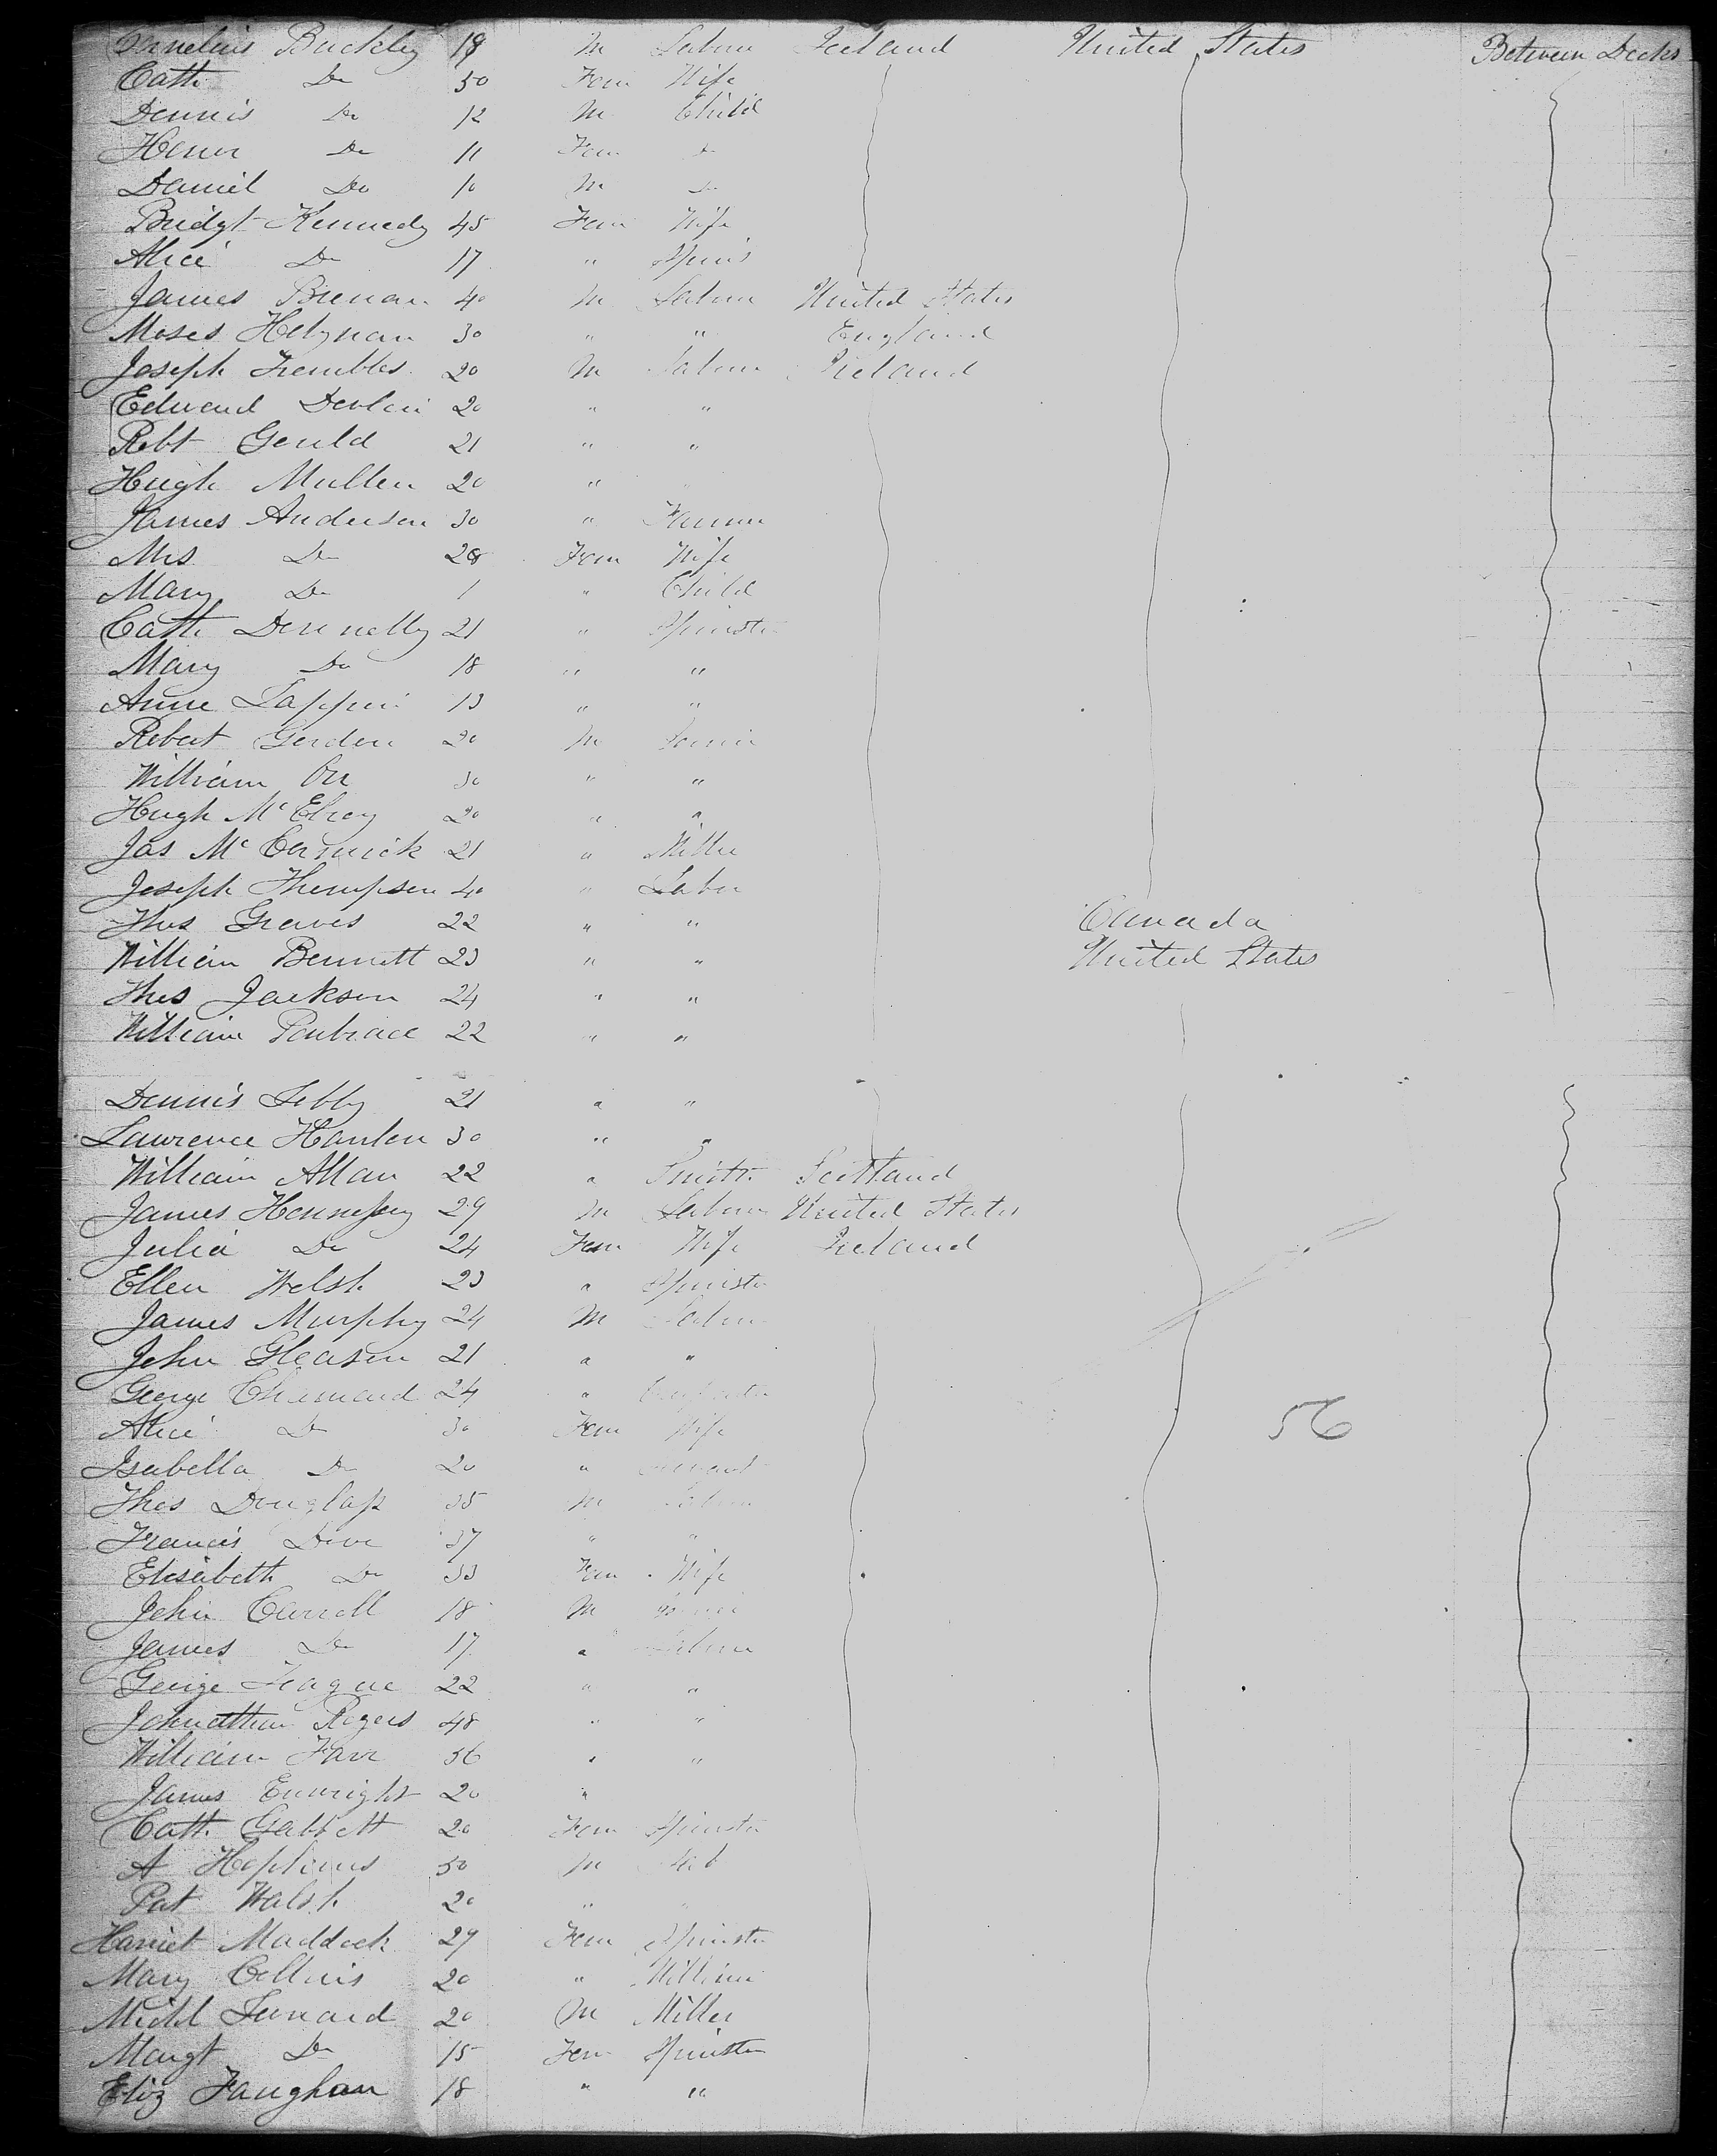 Cornelius Buckley 18 M Labour Ireland United States Between Decks
Cath Do 50 Fem Wife
Dennis Do 12 M Child
Honor Do 11 Fem Do
Daniel Do 10 M Do
Bridgt Kennedy 45 Fem Wife
Alice Do 17 " Spins
James Brenan 40 M Labour United States
Moses 30 " " England
Joseph Trembles 20 M Labour Ireland
Edward Devlin 20 " "
Robt Gould 21 " "
Hugh Mullen 20 "
James Anderson 30 " Farmer
Mrs Do 28 Fem Wife
Mary Do 1 " Child
Cath Donnelly 21 " Spinster
Mary Do 18 " "
Anne Lappin 13 " "
Robert Gordon 20 M
William Orr 30 " "
Hugh McElroy 20 " "
Jas McCormick 21 " Miller
Joseph Thompson 40 " Labor
Thos Graves 22 " " Canada
William Bennett 23 " " United States
Thos Jackson 24 " "
William 22 " "
Dennis 21 " "
Lawrence Hanlon 30 " "
William Allan 22 " Smith Scotland
James Hennessy 29 M Labour United States
Julia Do 24 Fem Wife Ireland
Ellen Welsh 23 " Spinster
James Murphy 24 M Labour
John Gleason 21 " "
George 24 " Carpenter
Alice Do 30 Fem Wife 56
Isabella Do 20 " Servant
Thos Douglass 35 M Labour
Francis Dove 37 " "
Elisabeth Do 33 Fem Wife
John Carroll 18 M
James Do 17 " Labour
George Teague 22 " "
Johnathan Rogers 48 " "
William Farr 56 " "
James Enright 20 "
Cath Gabbett 20 Fem Spinster
A Hopkins 50 M
Pat Walsh 20 " "
Harriet Maddock 29 Fem Spinster
Mary Collins 20 "
Michl Lenard 20 M Miller
Margt Do 15 Fem Spinster
Eliz Faughnan 18 " "